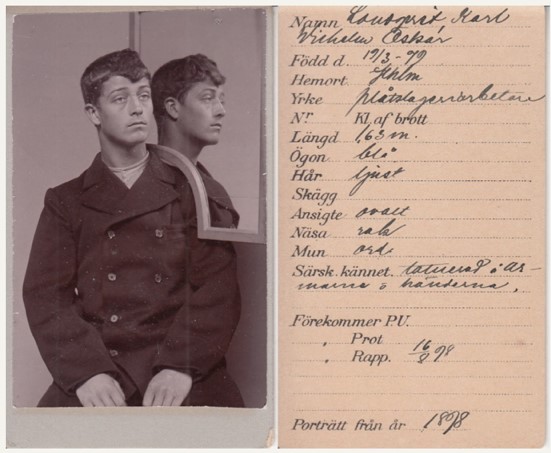 Namn Lonnqvist, Karl
Vilhelm Oskár
Född d. 19/3 - 79
Hemort Sthlm
Yrke plåtslageriarbetare
Nr Kl. af brott
Längd 1,63 m.
Ögon blå
Hår ljust
Skägg
Ansigte ovalt
Näsa rak
Mun ord.
Särsk. kännet. tatuerad å ar-
marna o händerna.
Förekommer P.U.
„ Prot
„ Rapp. 16/8 98
Porträtt från år 1898